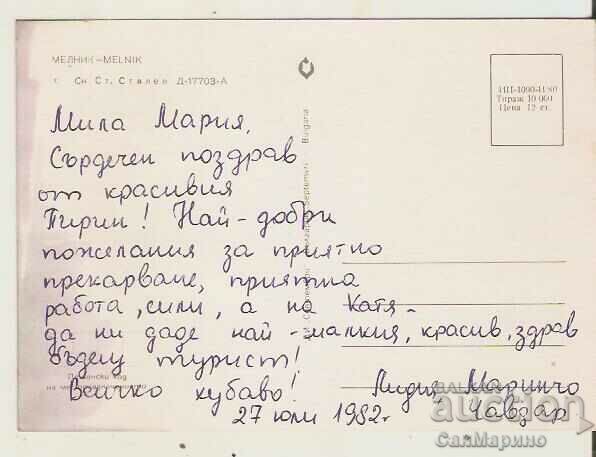 МЕЛНИК — MELNIK
Сн. Ст. Сталев Д-17703-А
ИП-1090-II/80
Тираж 10 000
Цена 12 ст.
Септември
Bulgaria
Мила Мария,
Сърдечен поздрав
от красивия
Пирин! Най-добри
пожелания за приятно
прекарване, приятна
работа, сили, а на Катя -
да ни даде най-малкия, красив, здрав
бъдещ турист!
Всичко хубаво!
Лидия, Маринчо
27 юли 1982г
Чавдар
auction
СалМарино